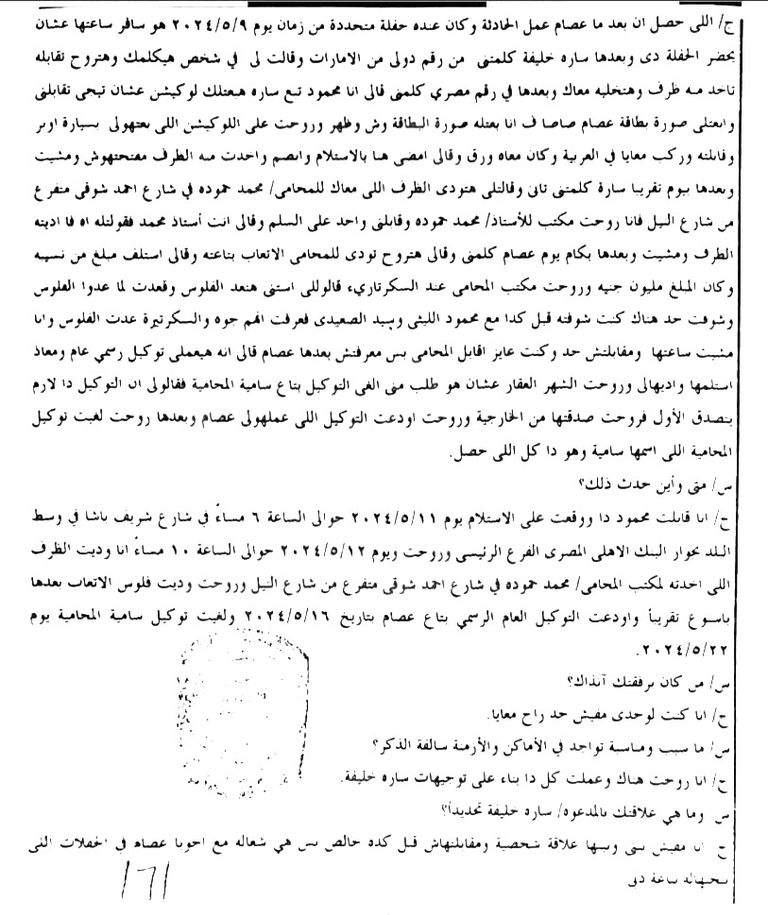 ج/ اللى حصل ان بعد ما عصام عمل الحادثة وكان عنده حفلة متحددة من زمان يوم ٢٠٢٤/٥/٩ هو سافر ساعتها عشان
يحضر الحفلة دى وبعدها ساره خليفة كلمتنى من رقم دولى من الامارات وقالت لى في شخص هيكلمك وهتروح تقابله
تاخد منه ظرف وهتخليه معاك وبعدها في رقم مصري كلمنى قالى انا محمود تبع ساره هبعتلك لوكيشن عشان تيجى تقابلنى
وابعتلى صورة بطاقة عصام صاصا ف انا بعتله صورة البطاقة وش وظهر وروحت على اللوكيشن اللى بعتهولى بسيارة اوبر
وقابلته وركب معايا في العربية وكان معاه ورق وقالى امضى هنا بالاستلام وابصم واخدت منه الظرف مفتحتهوش ومشيت
وبعدها بيوم تقريبا سارة كلمتنى تانى وقالتلى هتودى الظرف اللى معاك للمحامى/ محمد حموده في شارع احمد شوقى متفرع
من شارع النيل فانا روحت مكتب للأستاذ/ محمد حموده وقابلنى واحد على السلم وقالى انت أستاذ محمد فقولتله اه فا اديته
الظرف ومشيت وبعدها بكام يوم عصام كلمنى وقالى هتروح تودى للمحامى الاتعاب بتاعته وقالى استلف مبلغ من نسيبه
وكان المبلغ مليون جنيه وروحت مكتب المحامى عند السكرتاريء قالوللى استنى هنعد الفلوس وقعدت لما عدوا الفلوس
وشوفت حد هناك كنت شوفته قبل كدا مع محمود الليثى وسيد الصعيدى فعرفت انهم جوه والسكرتيرة عدت الفلوس وانا
مشيت ساعتها ومقابلتش حد وكنت عايز اقابل المحامى بس معرفتش بعدها عصام قالى انه هيعملى توكيل رسمي عام ومعاذ
استلمها واديهالى وروحت الشهر العقار عشان هو طلب منى الغى التوكيل بتاع سامية المحامية فقالولى ان التوكيل دا لازم
يتصدق الأول فروحت صدقتها من الخارجية وروحت اودعت التوكيل اللى عملهولى عصام وبعدها روحت لغيت توكيل
المحامية اللى اسمها سامية وهو دا كل اللى حصل.
س/ متى وأين حدث ذلك؟
ج/ انا قابلت محمود دا ووقعت على الاستلام يوم ٢٠٢٤/٥/١١ حوالى الساعة ٦ مساءً في شارع شريف باشا في وسط
البلد بجوار البنك الاهلى المصرى الفرع الرئيسى وروحت ويوم ٢٠٢٤/٥/١٢ حوالى الساعة ١٠ مساءً انا وديت الظرف
اللى اخدته لمكتب المحامى/ محمد حموده في شارع احمد شوقى متفرع من شارع النيل وروحت وديت فلوس الاتعاب بعدها
باسبوع تقريباً واودعت التوكيل العام الرسمي بتاع عصام بتاريخ ٢٠٢٤/٥/١٦ ولغيت توكيل سامية المحامية يوم
٢٠٢٤/٥/٢٢.
س/ من كان برفقتك آنذاك؟
ج/ انا كنت لوحدى مفيش حد راح معايا.
س/ ما سبب ومناسبة تواجد في الأماكن والأزمنة سالفة الذكر؟
ج/ انا روحت هناك وعملت كل دا بناء على توجيهات ساره خليفة.
س وما هي علاقتك بالمدعوه/ ساره خليفة تحديداً؟
ج انا مفيش بينى وبينها علاقة شخصية ومقابلتهاش قبل كده خالص بس هي شغاله مع اخويا عصام في الحفلات اللى
بتجيهاله دبى